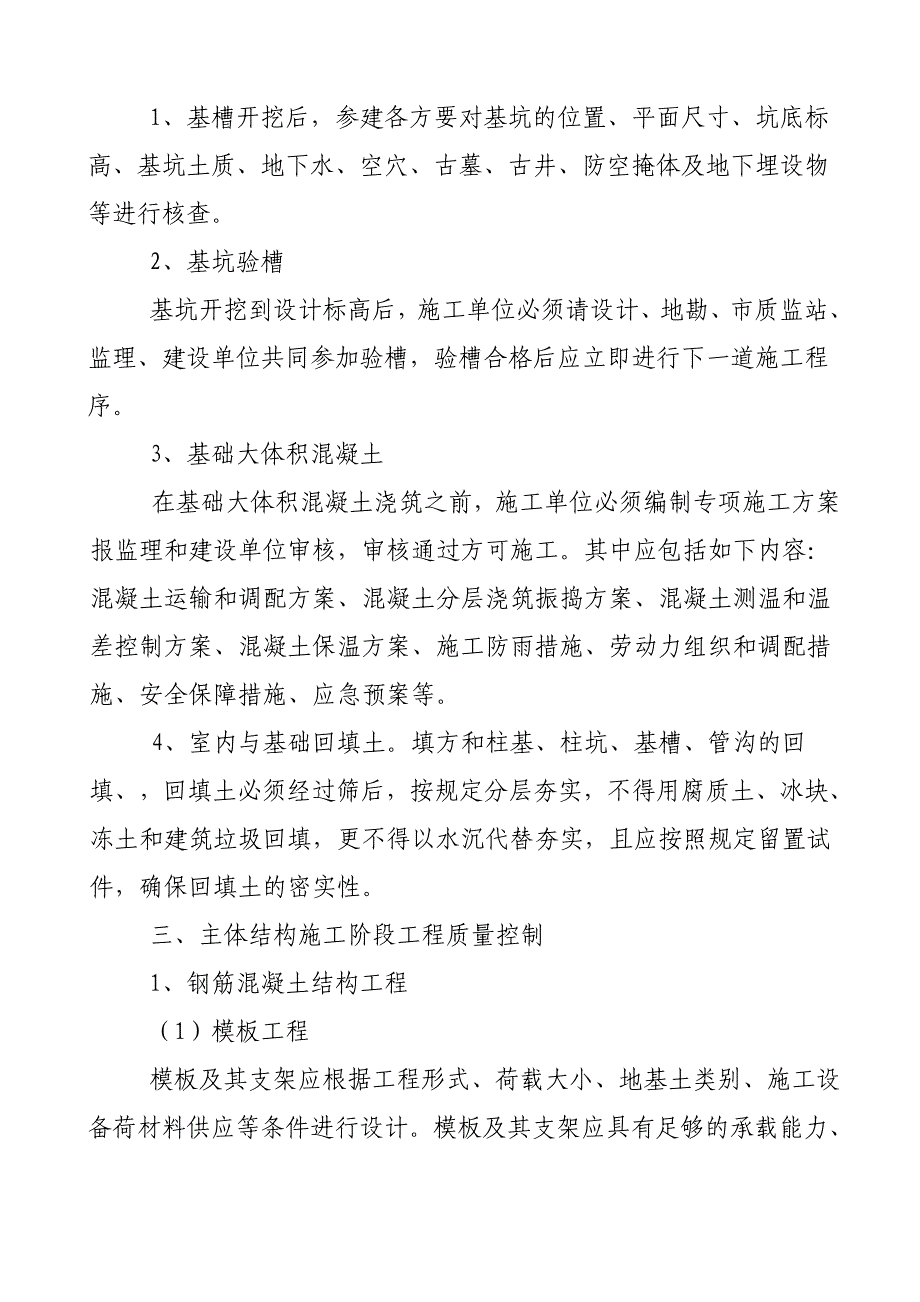 1、基槽开挖后，参建各方要对基坑的位置、平面尺寸、坑底标
高、基坑土质、地下水、空穴、古墓、古井、防空掩体及地下埋设物
等进行核查。
2、基坑验槽
基坑开挖到设计标高后，施工单位必须请设计、地勘、市质监站、
监理、建设单位共同参加验槽，验槽合格后应立即进行下一道施工程
序。
3、基础大体积混凝土
在基础大体积混凝土浇筑之前，施工单位必须编制专项施工方案
报监理和建设单位审核，审核通过方可施工。其中应包括如下内容：
混凝土运输和调配方案、混凝土分层浇筑振捣方案、混凝土测温和温
差控制方案、混凝土保温方案、施工防雨措施、劳动力组织和调配措
施、安全保障措施、应急预案等。
4、室内与基础回填土。填方和柱基、柱坑、基槽、管沟的回
填、，回填土必须经过筛后，按规定分层夯实，不得用腐质土、冰块、
冻土和建筑垃圾回填，更不得以水沉代替夯实，且应按照规定留置试
件，确保回填土的密实性。
三、主体结构施工阶段工程质量控制
1、钢筋混凝土结构工程
（1）模板工程
模板及其支架应根据工程形式、荷载大小、地基土类别、施工设
备荷材料供应等条件进行设计。模板及其支架应具有足够的承载能力、